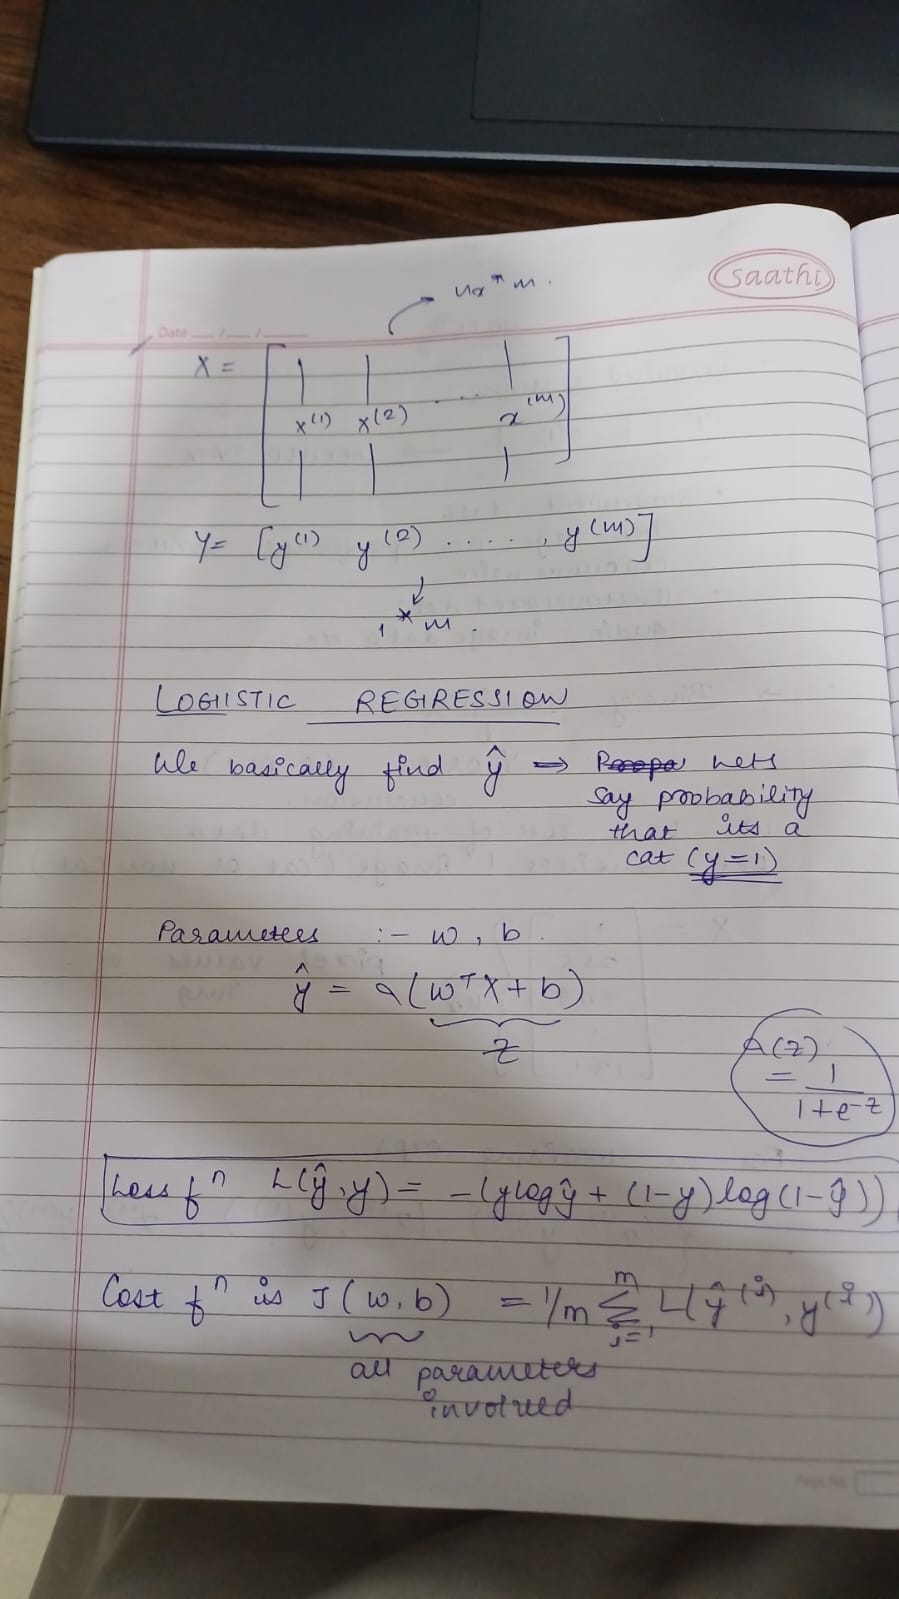 Saathi
nx * m.
Date __/__/__
X = [ x(1) x(2) .... x(m) ]
Y = [y(1) y(2) ....., y(m)]
1 * m.
LOGIISTIC REGRESSION
We basically find ŷ ⇒ lets
say probability
that its a
cat (y=1)
Parameters :- w, b.
ŷ = a(wᵀX + b)
z
A(z)
= 1
1+e-z
Loss fⁿ L(ŷ,y) = -(ylogŷ + (1-y)log(1-ŷ))
Cost fⁿ is J(w,b) = 1/m Σ m i=1 L(ŷ(i), y(i))
all parameters
involved
Page No.